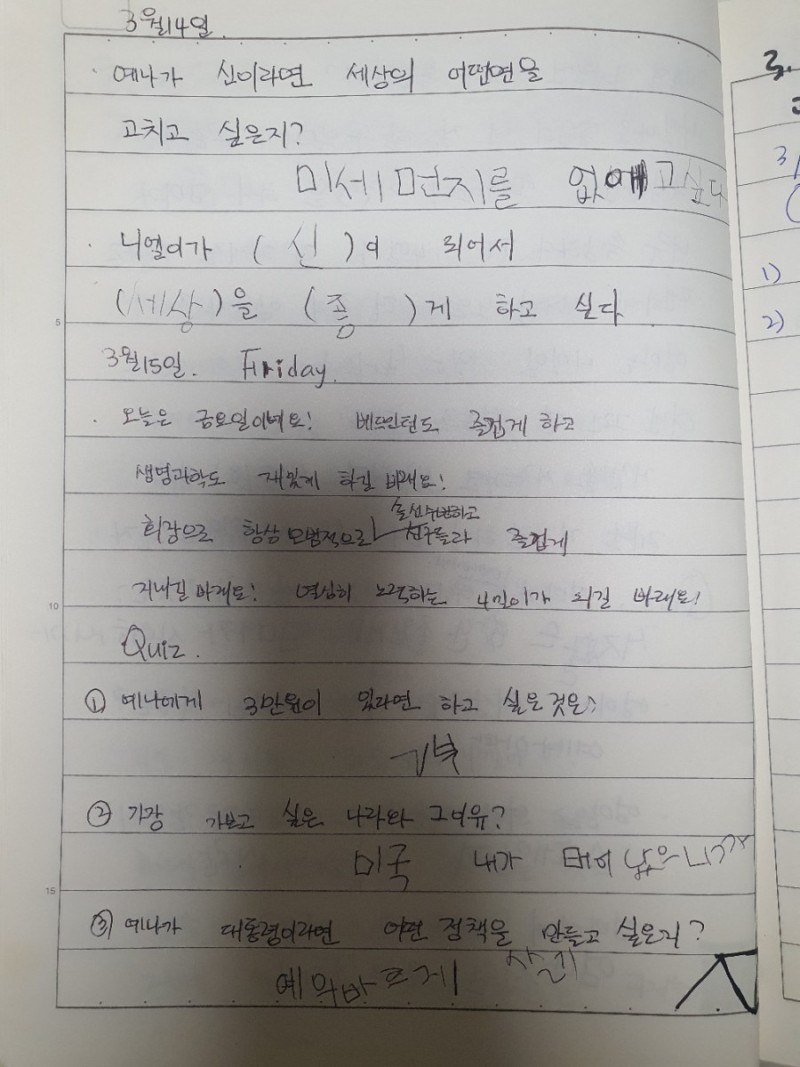 3월14일.
· 예나가 신이라면 세상의 어떤면을
고치고 싶은지?
미세먼지를 없애고싶다
· 니엘이가 (신)이 되어서
(세상)을 (좋)게 하고 싶다
5
3월15일. Friday.
· 오늘은 금요일이네요! 베드민턴도 즐겁게 하고
생명과학도 재밌게 하길 바래요!
솔선수범하고
회장으로 항상 모범적으로 친구들과 즐겁게
지내길 바래요! 열심히 노력하는 되길 바래요!
10
Quiz.
① 예나에게 3만원이 있다면 하고 싶은것은?
기부
② 가장 가보고 싶은 나라와 그이유?
미국 내가 태어 났으니까
15
③ 예나가 대통령이라면 어떤 정책을 만들고 싶은지?
예의바르게 살기
3.
1)
2)